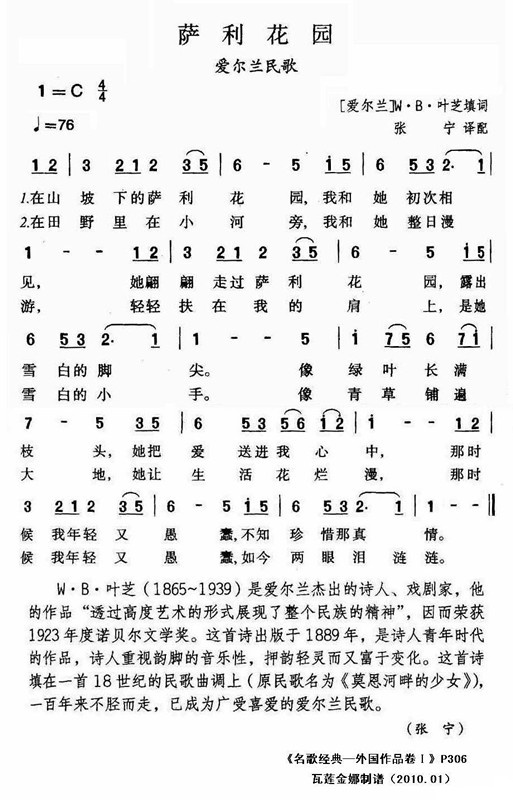 萨利花园
爱尔兰民歌
1=C 4/4
♩=76
[爱尔兰]W·B·叶芝填词
张 宁 译配
1 2 | 3 2 1 2 3 5 | 6 - 5 i 5 | 6 5 3 2· 1 |
1.在山 坡 下的萨 利 花 园,我和 她 初次相
2.在田 野 里在小 河 旁,我和 她 整日漫
1 - - 1 2 | 3 2 1 2 3 5 | 6 - 5 i 5 |
见, 她翩 翩 走过萨 利 花 园,露出
游, 轻轻 扶 在我的 肩 上,是她
6 5 3 2· 1 | 1 - - 5 | i 7 5 6 7 i |
雪 白的脚 尖。 像 绿 叶 长 满
雪 白的小 手。 像 青 草 铺 遍
7 - 5 3 5 | 6 5 3 5 6 i 2 | i - - 1 2 |
枝 头,她把 爱 送进我 心 中, 那时
大 地,她让 生 活花烂 漫, 那时
3 2 1 2 3 5 | 6 - 5 i 5 | 6 5 3 2· 1 | 1 - - ‖
候 我年轻 又 愚 蠢,不知 珍 惜那真 情。
候 我年轻 又 愚 蠢,如今 两 眼泪 涟 涟。
W·B·叶芝(1865~1939)是爱尔兰杰出的诗人、戏剧家,他
的作品“透过高度艺术的形式展现了整个民族的精神”,因而荣获
1923年度诺贝尔文学奖。这首诗出版于1889年,是诗人青年时代
的作品,诗人重视韵脚的音乐性,押韵轻灵而又富于变化。这首诗
填在一首18世纪的民歌曲调上(原民歌名为《莫恩河畔的少女》),
一百年来不胫而走,已成为广受喜爱的爱尔兰民歌。
(张 宁)
《名歌经典—外国作品卷Ⅰ》P306
瓦莲金娜制谱(2010.01)